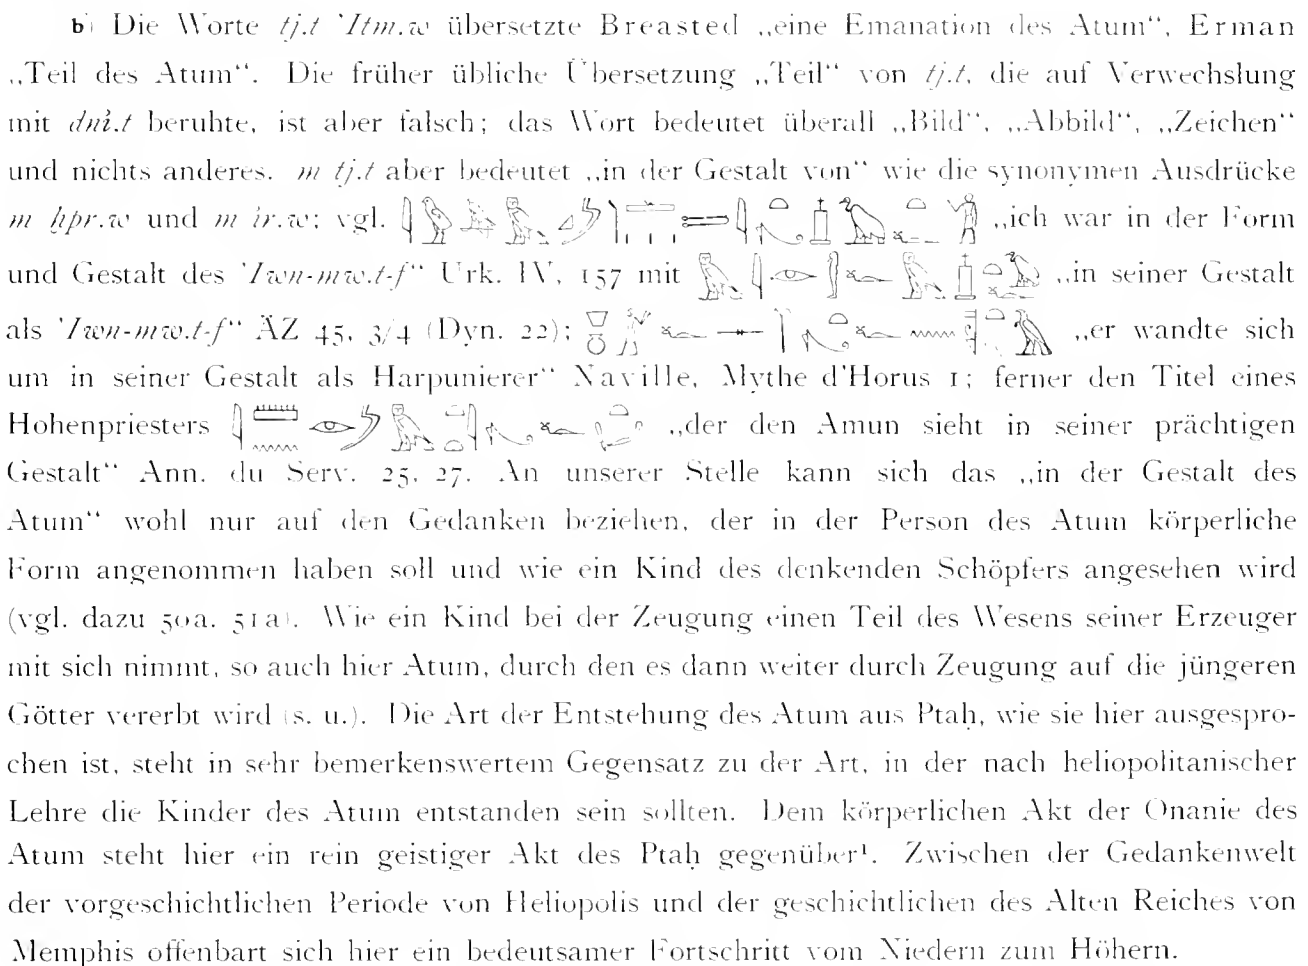 b) Die Worte tj.t 'Itm.w übersetzte Breasted „eine Emanation des Atum“, Erman
„Teil des Atum“. Die früher übliche Übersetzung „Teil“ von tj.t, die auf Verwechslung
mit dnỉ.t beruhte, ist aber falsch; das Wort bedeutet überall „Bild“, „Abbild“, „Zeichen“
und nichts anderes. m tj.t aber bedeutet „in der Gestalt von“ wie die synonymen Ausdrücke
m ḫpr.w und m ir.w; vgl. „ich war in der Form
und Gestalt des 'Iwn-mw.t-f“ Urk. IV, 157 mit „in seiner Gestalt
als 'Iwn-mw.t-f“ ÄZ 45, 3/4 (Dyn. 22); „er wandte sich
um in seiner Gestalt als Harpunierer“ Naville, Mythe d'Horus 1; ferner den Titel eines
Hohenpriesters „der den Amun sieht in seiner prächtigen
Gestalt“ Ann. du Serv. 25, 27. An unserer Stelle kann sich das „in der Gestalt des
Atum“ wohl nur auf den Gedanken beziehen, der in der Person des Atum körperliche
Form angenommen haben soll und wie ein Kind des denkenden Schöpfers angesehen wird
(vgl. dazu 50a. 51a). Wie ein Kind bei der Zeugung einen Teil des Wesens seiner Erzeuger
mit sich nimmt, so auch hier Atum, durch den es dann weiter durch Zeugung auf die jüngeren
Götter vererbt wird (s. u.). Die Art der Entstehung des Atum aus Ptaḥ, wie sie hier ausgespro-
chen ist, steht in sehr bemerkenswertem Gegensatz zu der Art, in der nach heliopolitanischer
Lehre die Kinder des Atum entstanden sein sollten. Dem körperlichen Akt der Onanie des
Atum steht hier ein rein geistiger Akt des Ptaḥ gegenüber¹. Zwischen der Gedankenwelt
der vorgeschichtlichen Periode von Heliopolis und der geschichtlichen des Alten Reiches von
Memphis offenbart sich hier ein bedeutsamer Fortschritt vom Niedern zum Höhern.